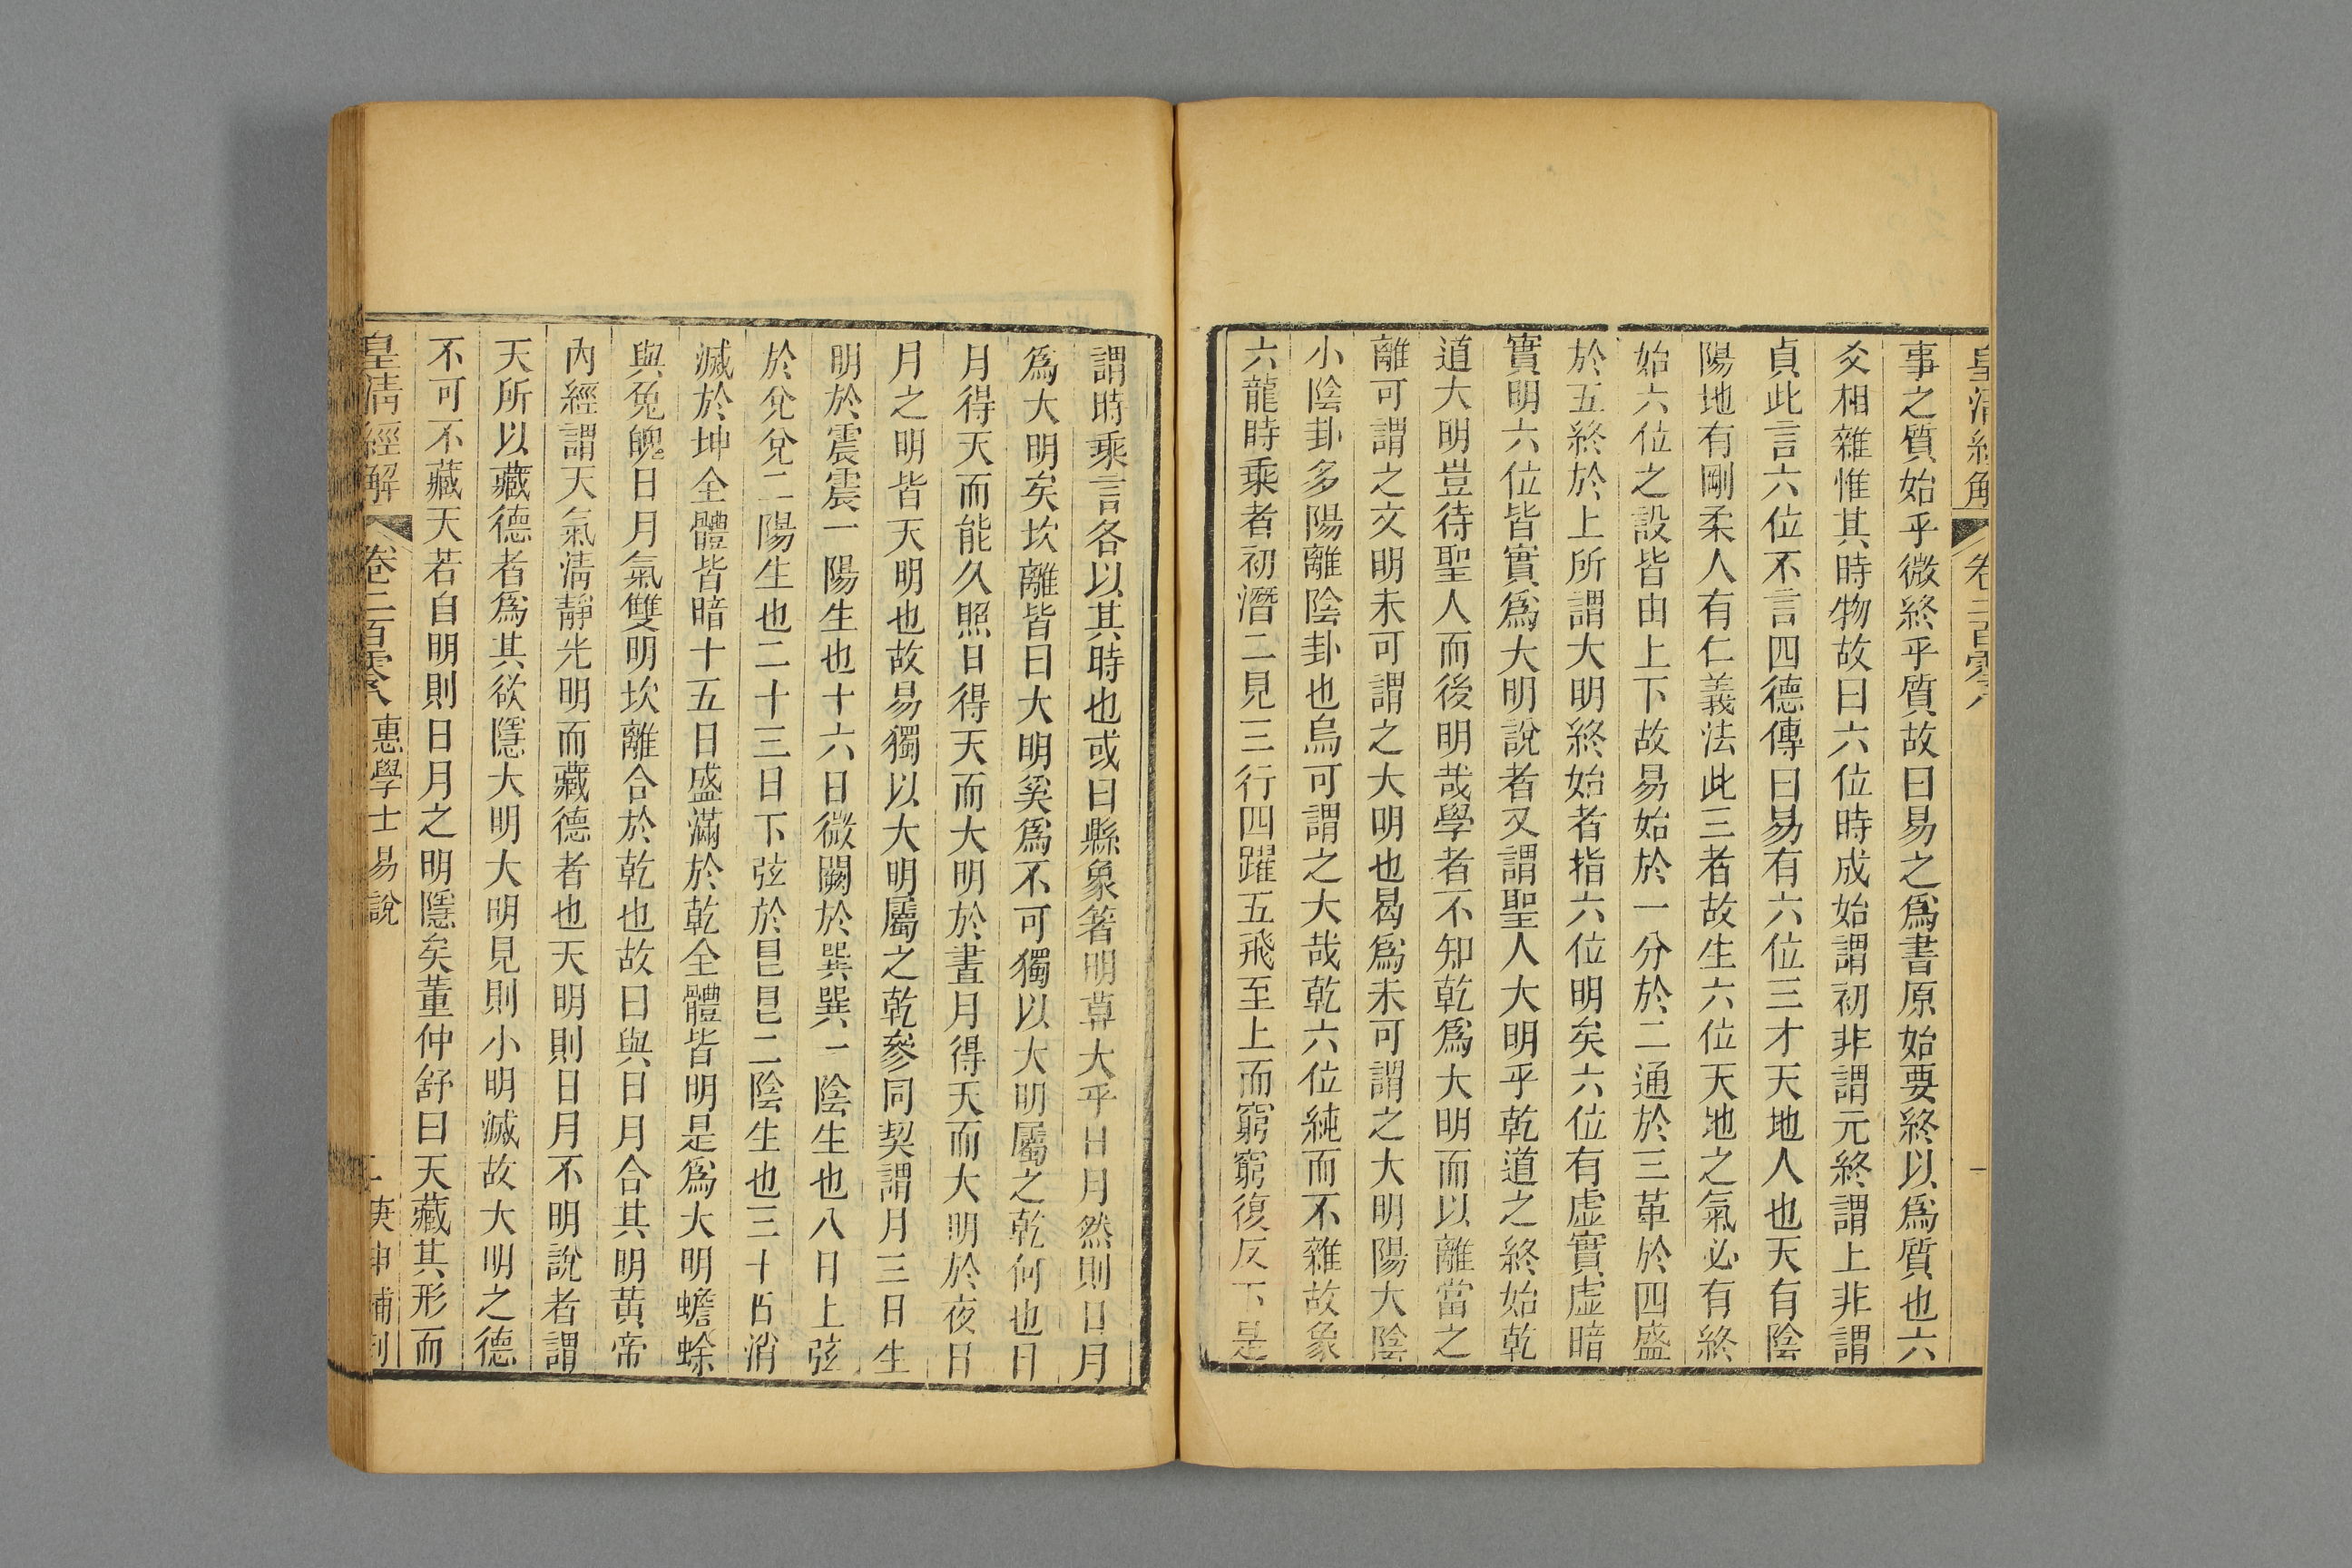 皇清經解 卷二百零八
事之質始乎微終乎質故曰易之爲書原始要終以爲質也六
爻相雜惟其時物故曰六位時成始謂初非謂元終謂上非謂
貞此言六位不言四德傳曰易有六位三才天地人也天有陰
陽地有剛柔人有仁義法此三者故生六位天地之氣必有終
始六位之設皆由上下故易始於一分於二通於三革於四盛
於五終於上所謂大明終始者指六位明矣六位有虛實虛暗
實明六位皆實爲大明說者又謂聖人大明乎乾道之終始乾
道大明豈待聖人而後明哉學者不知乾爲大明而以離當之
離可謂之文明未可謂之大明也曷爲未可謂之大明陽大陰
小陰卦多陽離陰卦也烏可謂之大哉乾六位純而不雜故象
六龍時乘者初潛二見三行四躍五飛至上而窮窮復反下是
謂時乘言各以其時也或曰縣象箸明莫大乎日月然則日月
爲大明矣坎離皆曰大明奚爲不可獨以大明屬之乾何也曰
月得天而能久照日得天而大明於晝月得天而大明於夜日
月之明皆天明也故易獨以大明屬之乾參同契謂月三日生
明於震震一陽生也十六日微闕於巽巽一陰生也八日上弦
於兌兌二陽生也二十三日下弦於艮艮二陰生也三十日消
滅於坤全體皆暗十五日盛滿於乾全體皆明是爲大明蟾蜍
與兔魄日月氣雙明坎離合於乾也故曰與日月合其明黃帝
內經謂天氣淸靜光明而藏德者也天明則日月不明說者謂
天所以藏德者爲其欲隱大明大明見則小明滅故大明之德
不可不藏天若自明則日月之明隱矣董仲舒曰天藏其形而
皇淸經解 卷二百零八 惠學士易說 二 庚申補刊